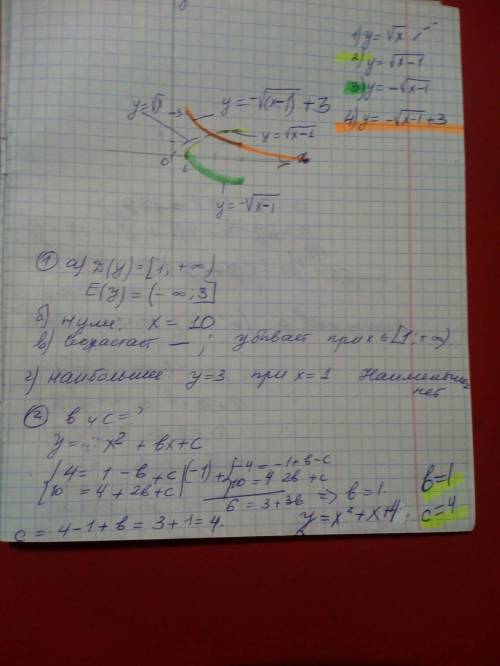 1) y = √x
2) y = √x-1
3) y = -√x-1
4) y = -√x-1 + 3
y=√x
y = -√(x-1) + 3
3
y = √x-1
0
1
y = -√x-1
① а) D(y) = [1; +∞)
E(y) = (-∞; 3]
б) нули: x = 10
в) возрастает — ; убывает при x ∈ [1; +∞)
г) наибольшее y=3 при x=1 Наименьш. нет
② в и c = ?
y = x² + вx + c
{ 4 = 1 - в + c |(-1) + { -4 = -1 + в - c
10 = 4 + 2в + c 10 = 4 2в + c
6 = 3 + 3в => в = 1.
в=1
c = 4 - 1 + в = 3 + 1 = 4.
y = x² + x + 4.
c = 4